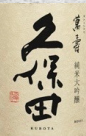 萬寿
久保田
純米大吟醸
KUBOTA